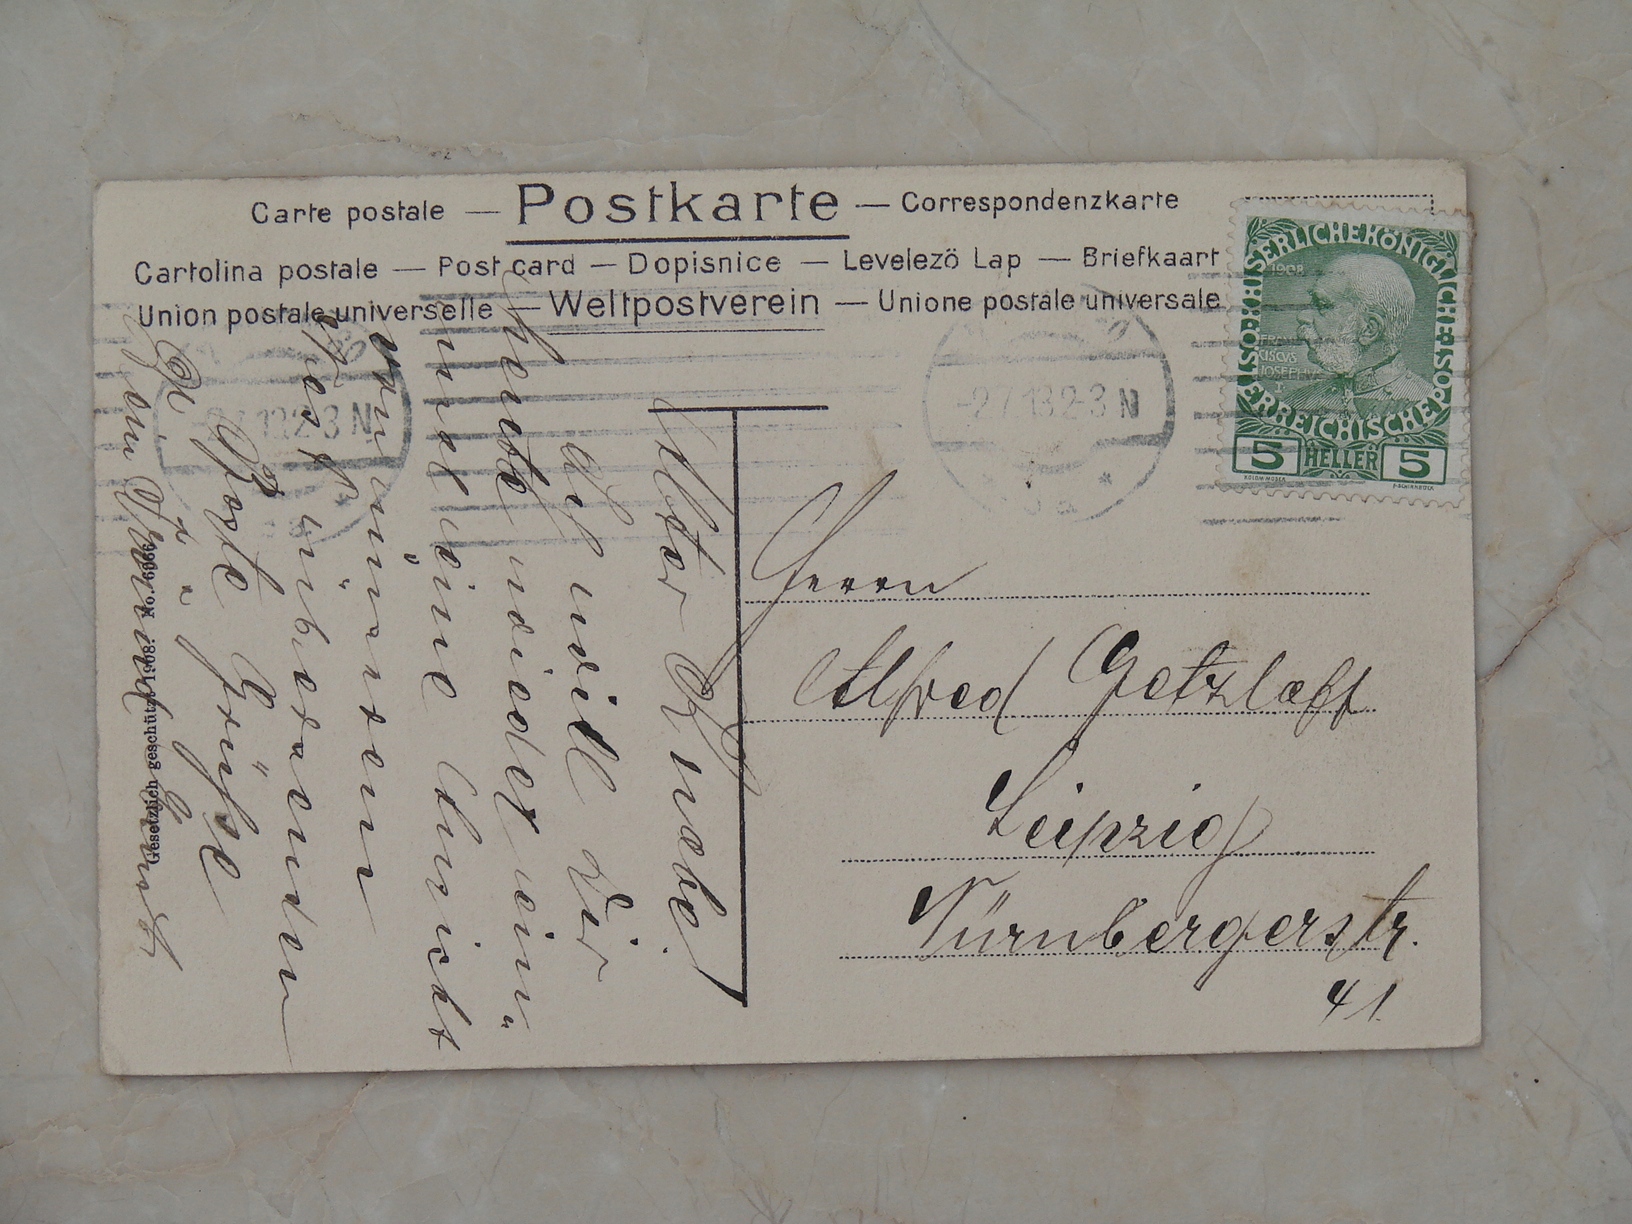 Carte postale — Postkarte — Correspondenzkarte
Cartolina postale — Post card — Dopisnice — Levelezö Lap — Briefkaart
Union postale universelle — Weltpostverein — Unione postale universale
KAISERLICHE KÖNIGLICHE ÖSTERREICHISCHE POST
1908
FRANCISCVS
JOSEPHVS
I.
5 HELLER 5
-2.7.13 2-3 N
-2.7.13 2-3 N
Herrn
Alfred Getzlaff
Leipzig
Nürnbergerstr.
41.
Alter Knabe!
Ich will Dir
heute wieder ein-
mal eine Ansicht
von unserem
übersenden
Beste Grüße
Dein Freund
Gesetzlich geschützt 1908. No. 6066